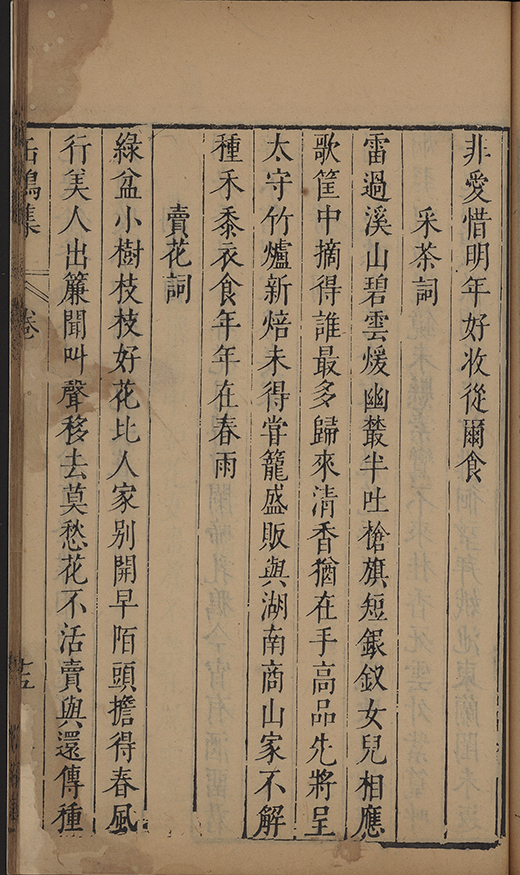 非愛惜明年好收從爾食
采茶詞
雷過溪山碧雲煖幽叢半吐槍旗短銀釵女兒相應
歌筐中摘得誰最多歸來清香猶在手高品先將呈
太守竹爐新焙未得甞籠盛販與湖南商山家不解
種禾黍衣食年年在春雨
賣花詞
綠盆小樹枝枝好花比人家别開早陌頭擔得春風
行美人出簾聞叫聲移去莫愁花不活賣與還傳種
缶鳴集
卷
十五